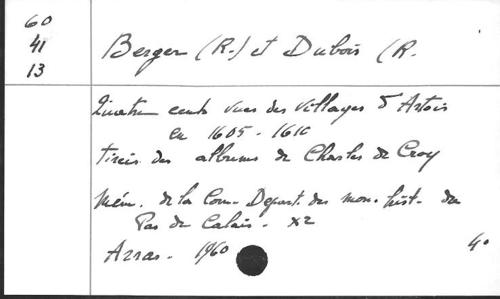 60
41
13
Berger (R.) et Dubois (R.
Quatre cents vues des villages d'Artois
en 1605 - 1610
tirées des albums de Charles de Croy
Mém. de la Com. Départ. des mon. hist. du
Pas de Calais - X2
Arras - 1960
4°